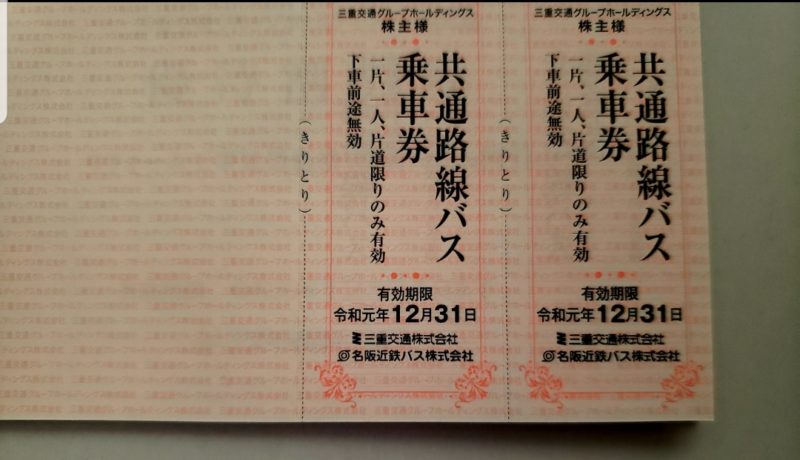 三重交通グループホールディングス
株主様
共通路線バス
乗車券
一片、一人、片道限りのみ有効
下車前途無効
有効期限
令和元年12月31日
三重交通株式会社
名阪近鉄バス株式会社
(きりとり)
三重交通グループホールディングス
株主様
共通路線バス
乗車券
一片、一人、片道限りのみ有効
下車前途無効
有効期限
令和元年12月31日
三重交通株式会社
名阪近鉄バス株式会社
(きりとり)